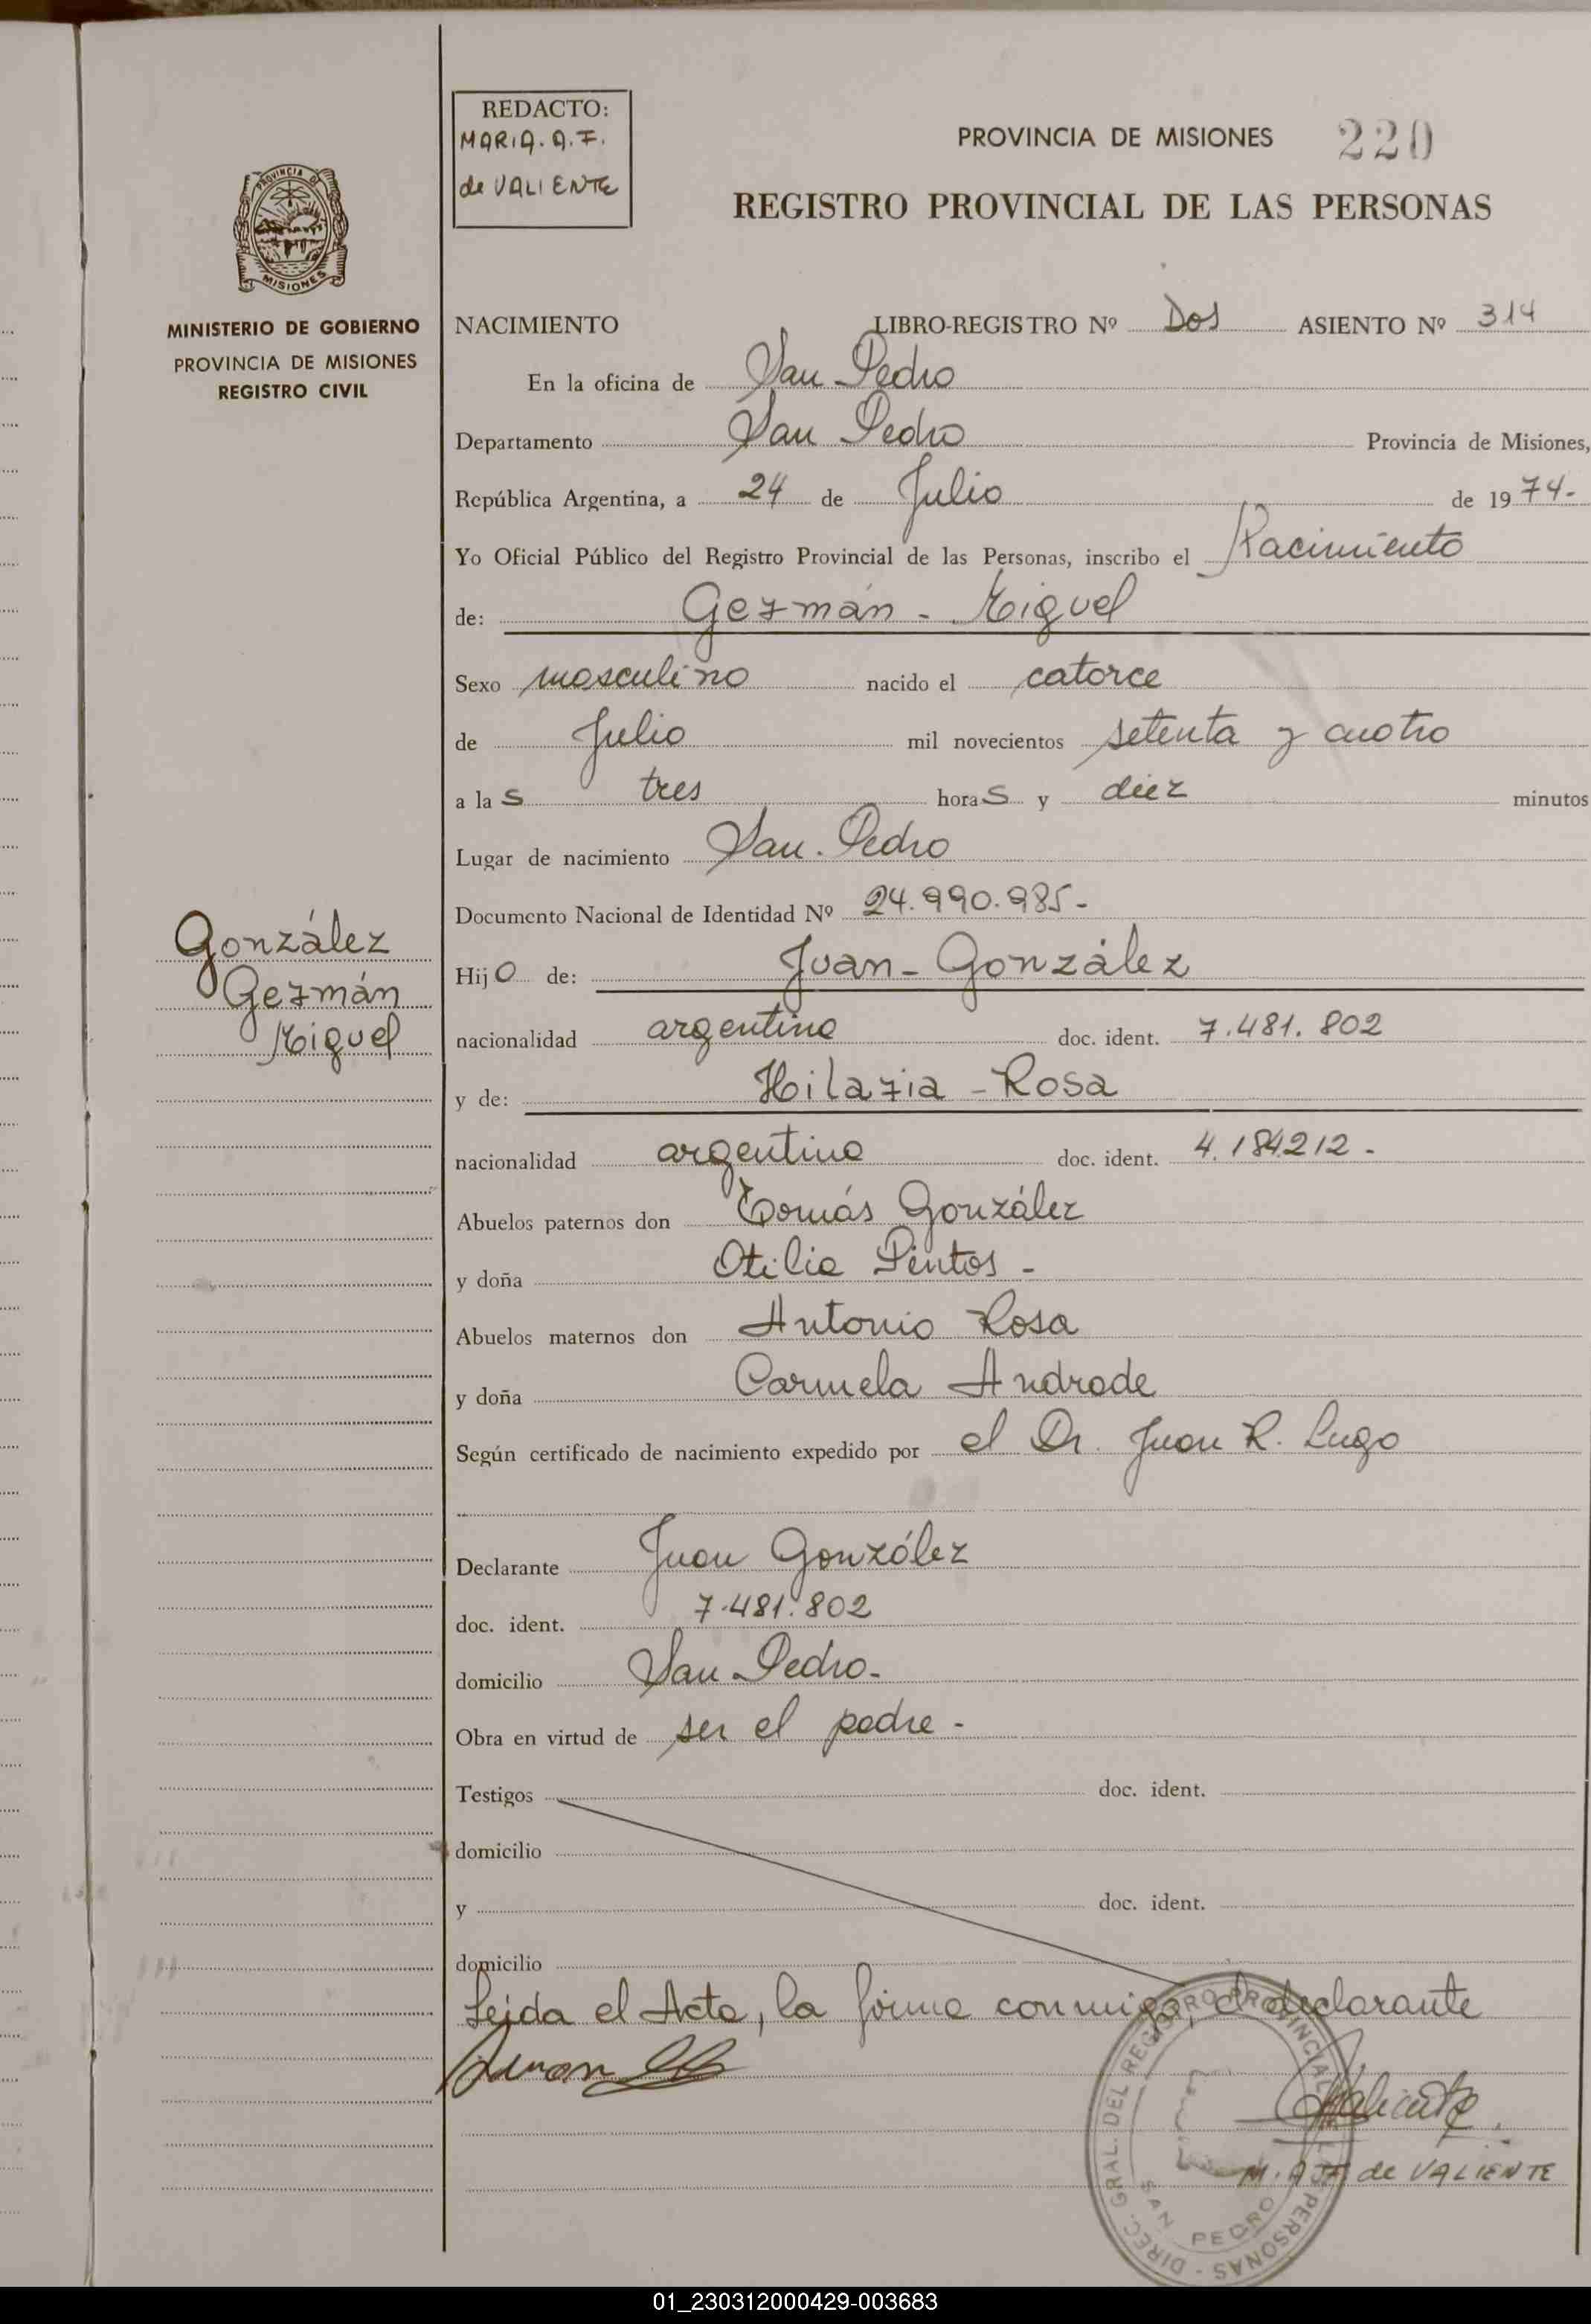 REDACTO:
MARIA. A. F.
de VALIENTE
PROVINCIA DE MISIONES 220
REGISTRO PROVINCIAL DE LAS PERSONAS
PROVINCIA DE
MISIONES
MINISTERIO DE GOBIERNO
PROVINCIA DE MISIONES
REGISTRO CIVIL
NACIMIENTO LIBRO-REGISTRO Nº Dos ASIENTO Nº 314
En la oficina de San Pedro
Departamento San Pedro Provincia de Misiones,
República Argentina, a 24 de Julio de 1974-
Yo Oficial Público del Registro Provincial de las Personas, inscribo el Nacimiento
de: Germán - Miguel
Sexo masculino nacido el catorce
de Julio mil novecientos setenta y cuatro
a las tres horas y diez minutos
Lugar de nacimiento San. Pedro
Documento Nacional de Identidad Nº 24.990.985-
González
Germán
Miguel
Hijo de: Juan - González
nacionalidad argentina doc. ident. 7.481.802
y de: Hilaria - Rosa
nacionalidad argentina doc. ident. 4.184212 -
Abuelos paternos don Tomás González
y doña Otilia Pintos -
Abuelos maternos don Antonio Rosa
y doña Carmela Andrade
Según certificado de nacimiento expedido por el Dr. Juan R. Lugo
Declarante Juan González
doc. ident. 7.481.802
domicilio San Pedro-
Obra en virtud de ser el padre -
Testigos doc. ident.
domicilio
y doc. ident.
domicilio
Leida el Acta, la firma conmigo, el declarante
Juan
Valiente
M. A. F. de VALIENTE
DIREC. GRAL. DEL REGISTRO PROVINCIAL DE PERSONAS -
SAN PEDRO
01_230312000429-003683